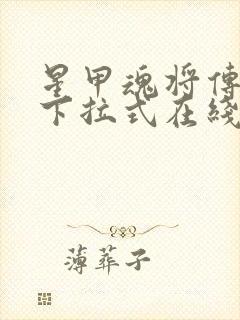 星甲魂将傳
下拉式在綫
薄葬子